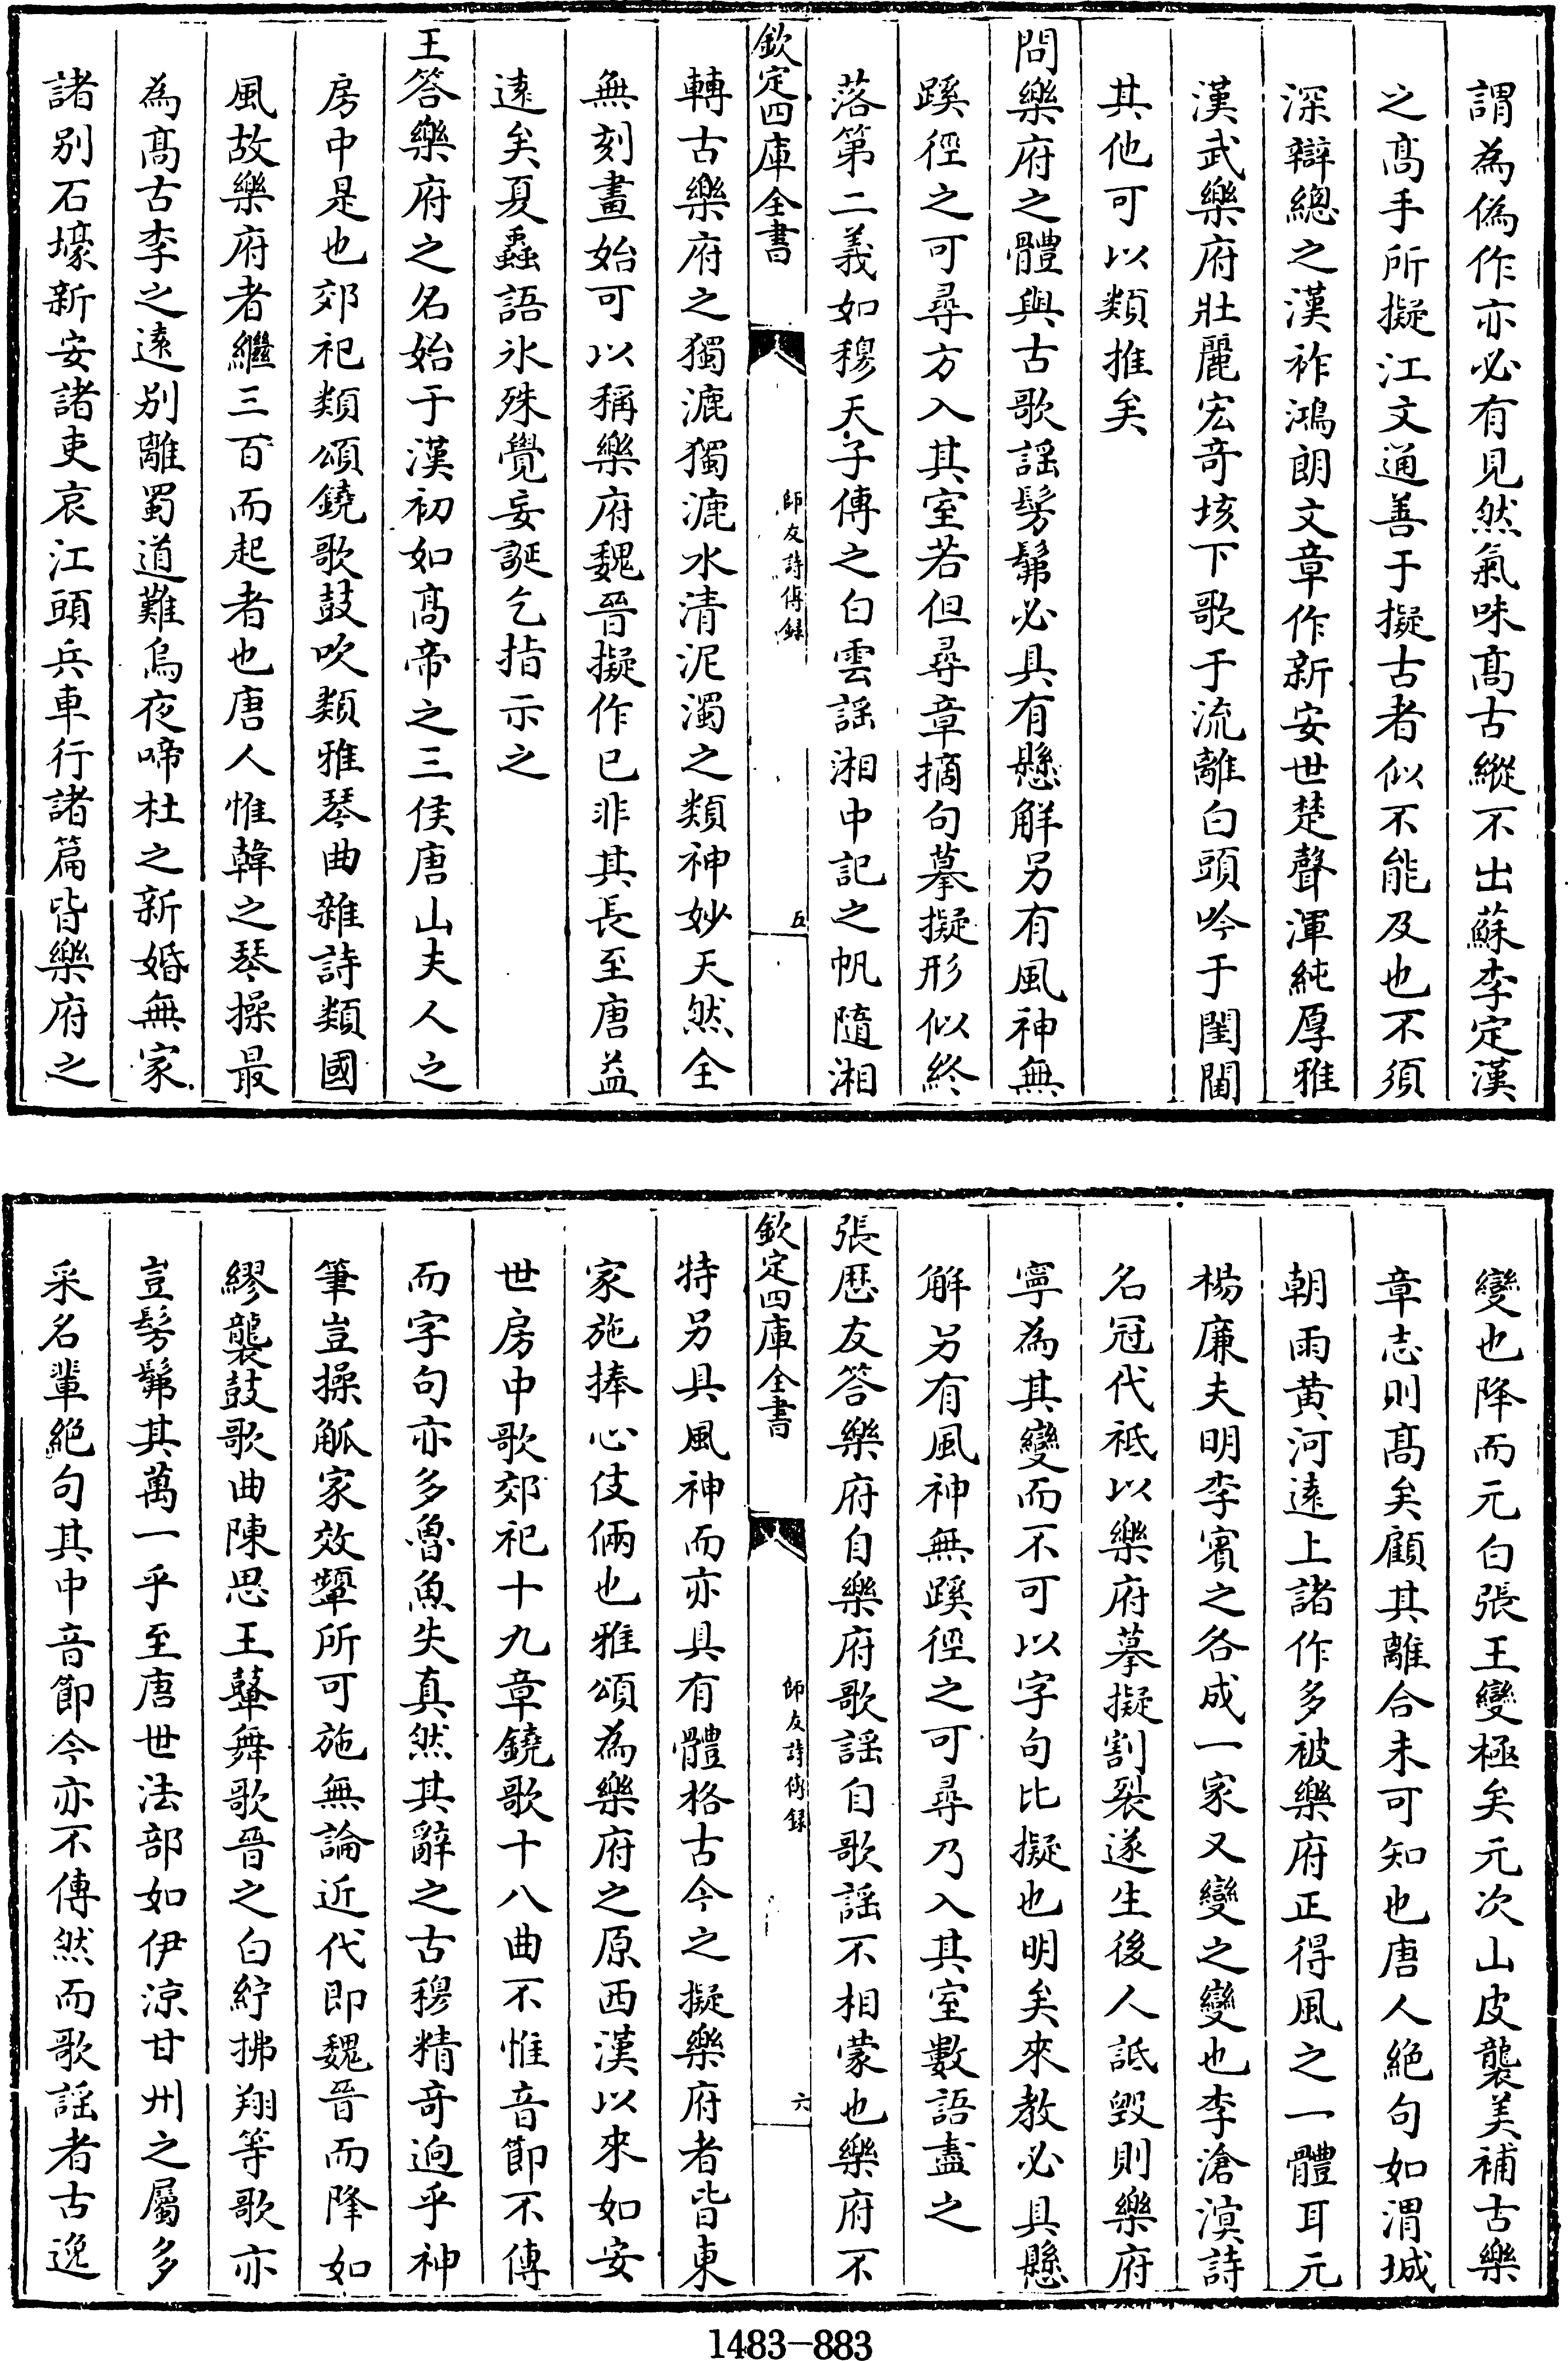 謂為偽作亦必有見然氣味髙古縱不出蘇李定漢
之髙手所擬江文通善于擬古者似不能及也不須
深辯總之漢祚鴻朗文章作新安世楚聲渾純厚雅
漢武樂府壯麗宏奇垓下歌于流離白頭吟于閨閫
其他可以類推矣
問樂府之體與古歌謡髣髴必具有懸解另有風神無
蹊徑之可尋方入其室若但尋章摘句摹擬形似終
落第二義如穆天子傳之白雲謡湘中記之帆隨湘
欽定四庫全書
師友詩傳録
五
轉古樂府之獨漉獨漉水清泥濁之類神妙天然全
無刻畫始可以稱樂府魏晉擬作已非其長至唐益
逺矣夏蟲語氷殊覺妄誕乞指示之
王答樂府之名始于漢初如髙帝之三侯唐山夫人之
房中是也郊祀類頌鐃歌鼓吹類雅琴曲雜詩類國
風故樂府者繼三百而起者也唐人惟韓之琴操最
為髙古李之逺别離蜀道難烏夜啼杜之新婚無家
諸别石壕新安諸吏哀江頭兵車行諸篇皆樂府之
變也降而元白張王變極矣元次山皮襲美補古樂
章志則髙矣顧其離合未可知也唐人絶句如渭城
朝雨黄河逺上諸作多被樂府正得風之一體耳元
楊廉夫明李賓之各成一家又變之變也李滄溟詩
名冠代祗以樂府摹擬割裂遂生後人詆毁則樂府
寧為其變而不可以字句比擬也明矣來教必具懸
解另有風神無蹊徑之可尋乃入其室數語盡之
張歴友答樂府自樂府歌謡自歌謡不相蒙也樂府不
欽定四庫全書
師友詩傳録
六
特另具風神而亦具有體格古今之擬樂府者皆東
家施捧心伎倆也雅頌為樂府之原西漢以來如安
世房中歌郊祀十九章鐃歌十八曲不惟音節不傳
而字句亦多魯魚失真然其辭之古穆精奇迥乎神
筆豈操觚家效顰所可施無論近代即魏晉而降如
繆襲鼓歌曲陳思王鼙舞歌晉之白紵拂翔等歌亦
豈髣髴其萬一乎至唐世法部如伊涼甘州之屬多
采名輩絶句其中音節今亦不傳然而歌謡者古逸
1483-883